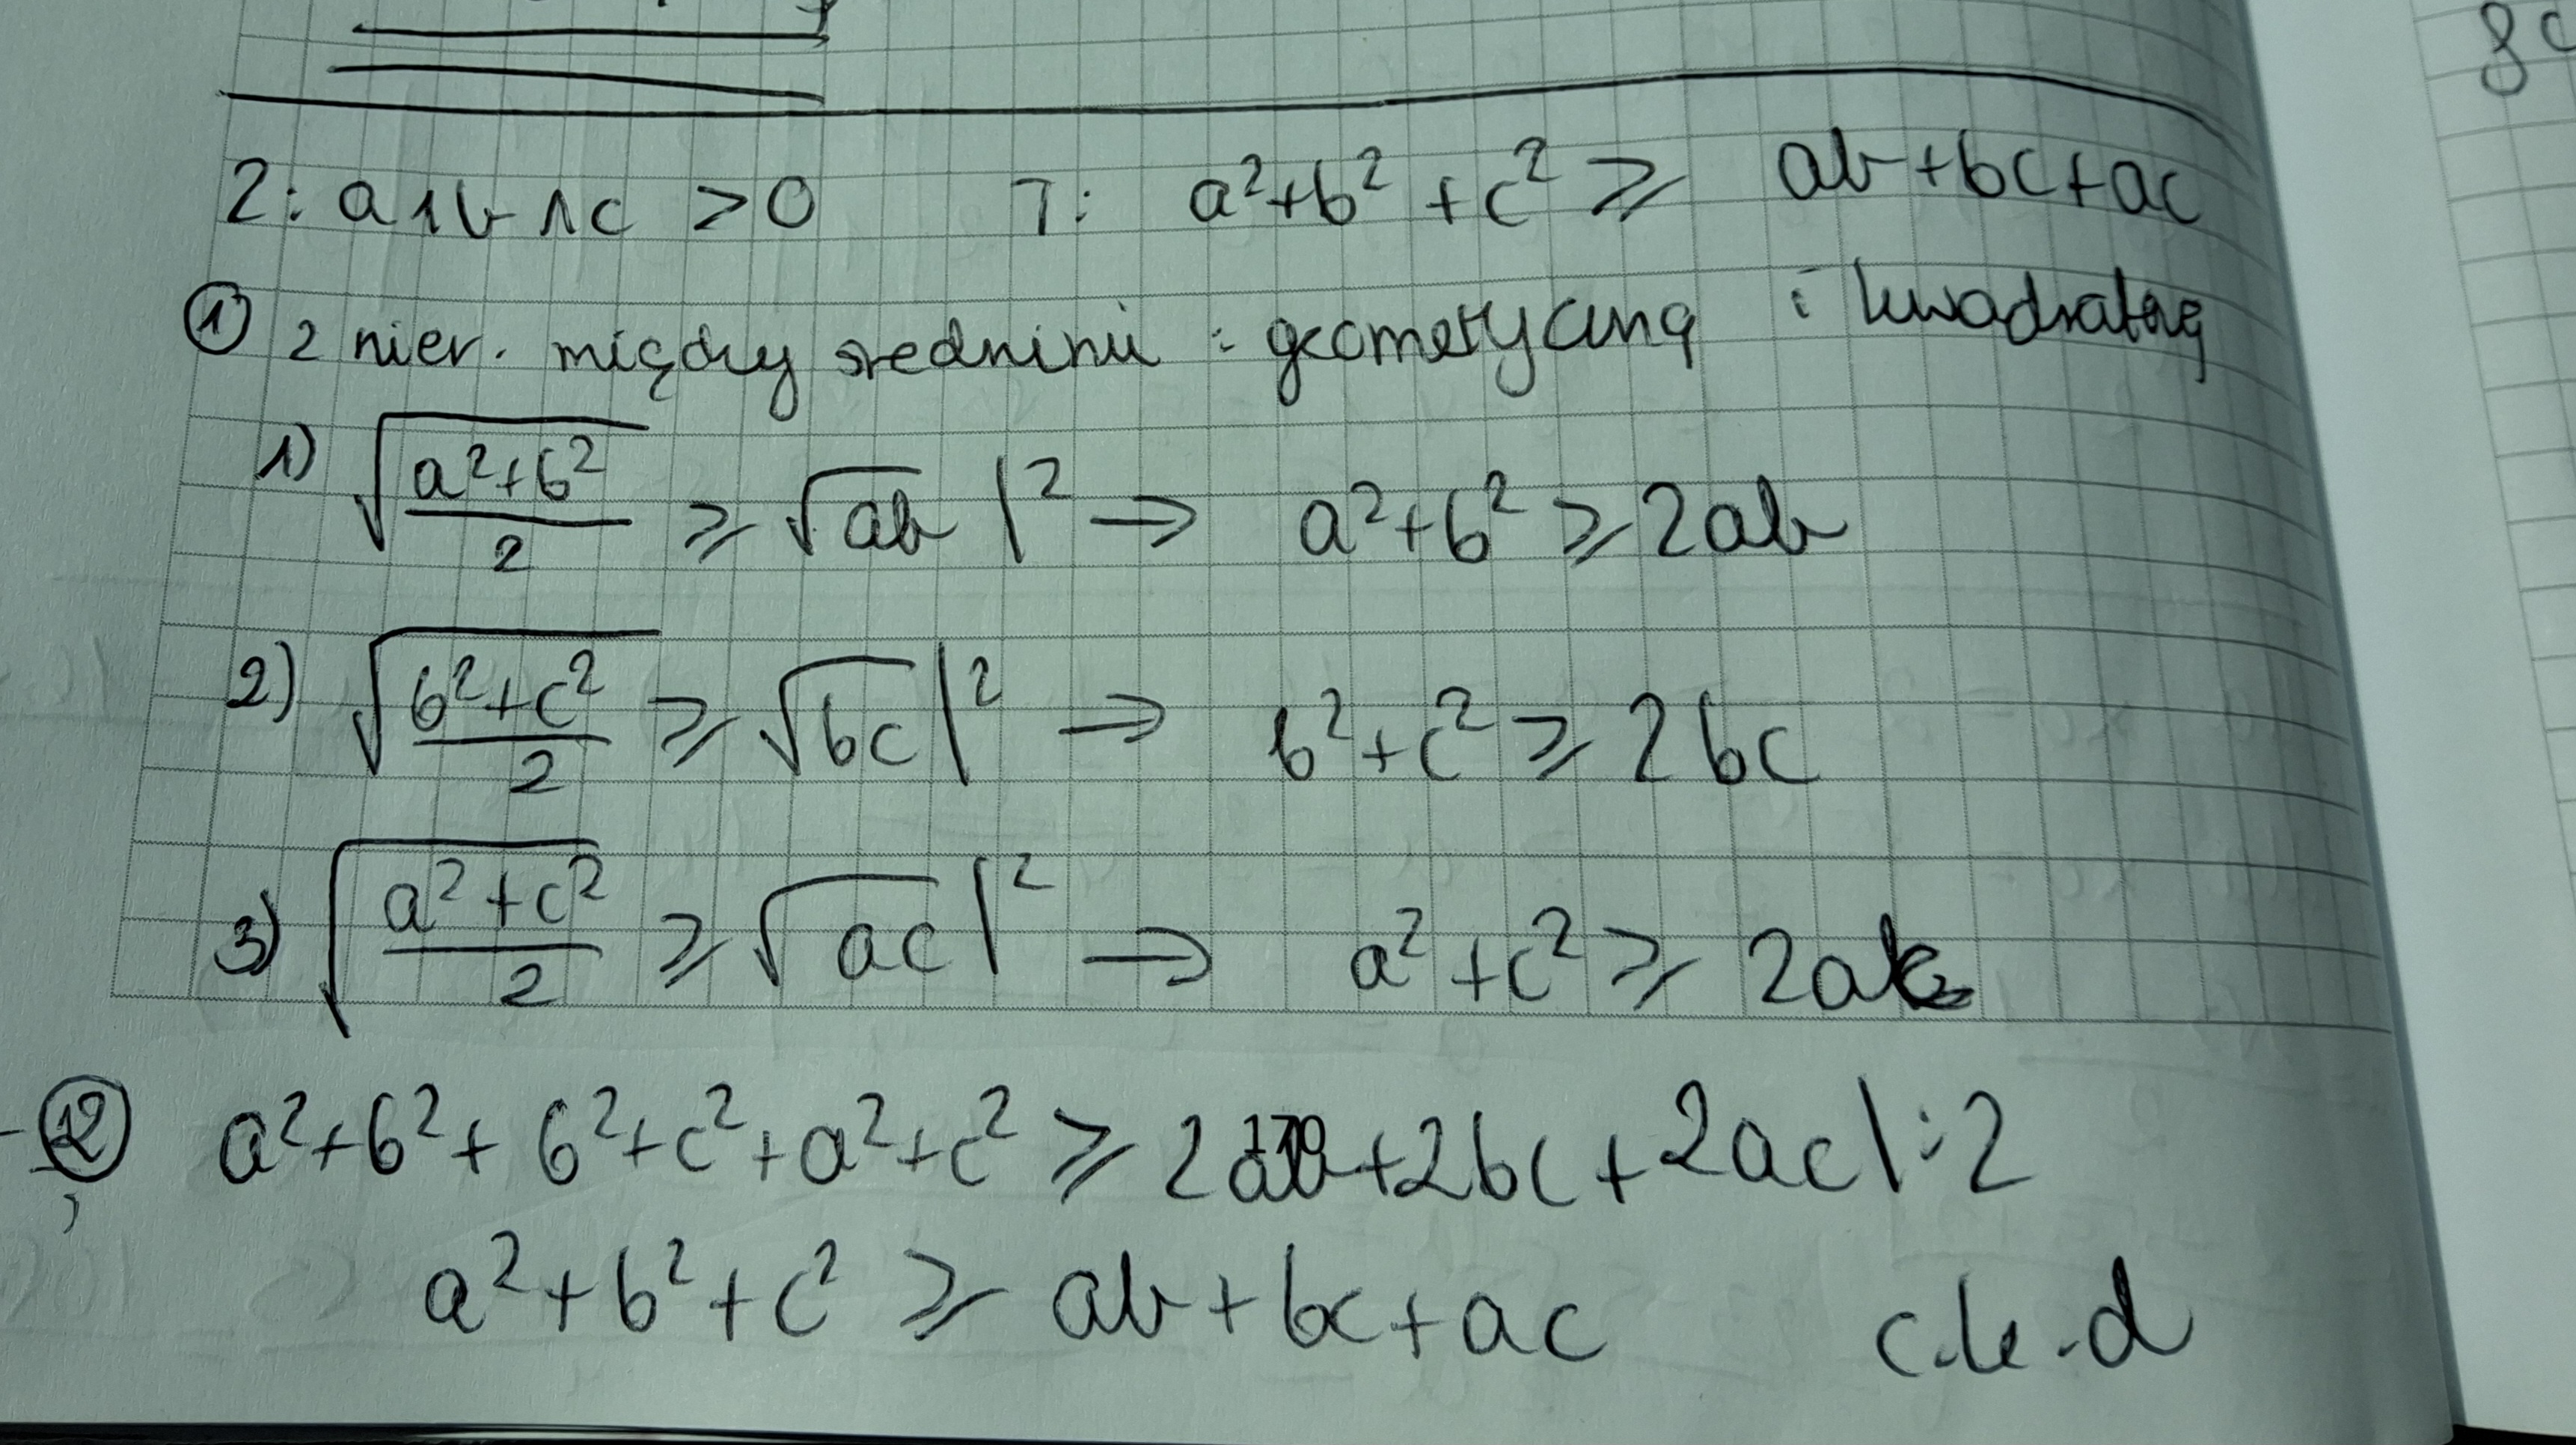 Z: a ∧ b ∧ c > 0 T: a²+b²+c² ⩾ ab+bc+ac
① z nier. między średnimi : geometryczną i kwadratową
1) √((a²+b²)/2) ⩾ √ab |² → a²+b² ⩾ 2ab
2) √((b²+c²)/2) ⩾ √bc |² → b²+c² ⩾ 2bc
3) √((a²+c²)/2) ⩾ √ac |² → a²+c² ⩾ 2ac
② a²+b²+b²+c²+a²+c² ⩾ 2ab+2bc+2ac |:2
170
a²+b²+c² ⩾ ab+bc+ac c.k.d